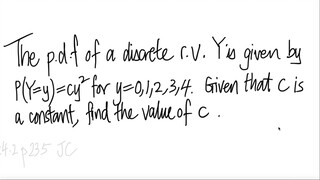 The p.d.f of a discrete r.v. Y is given by
P(Y=y)=cy² for y=0,1,2,3,4. Given that c is
a constant, find the value of c.
4.2 p235 JC